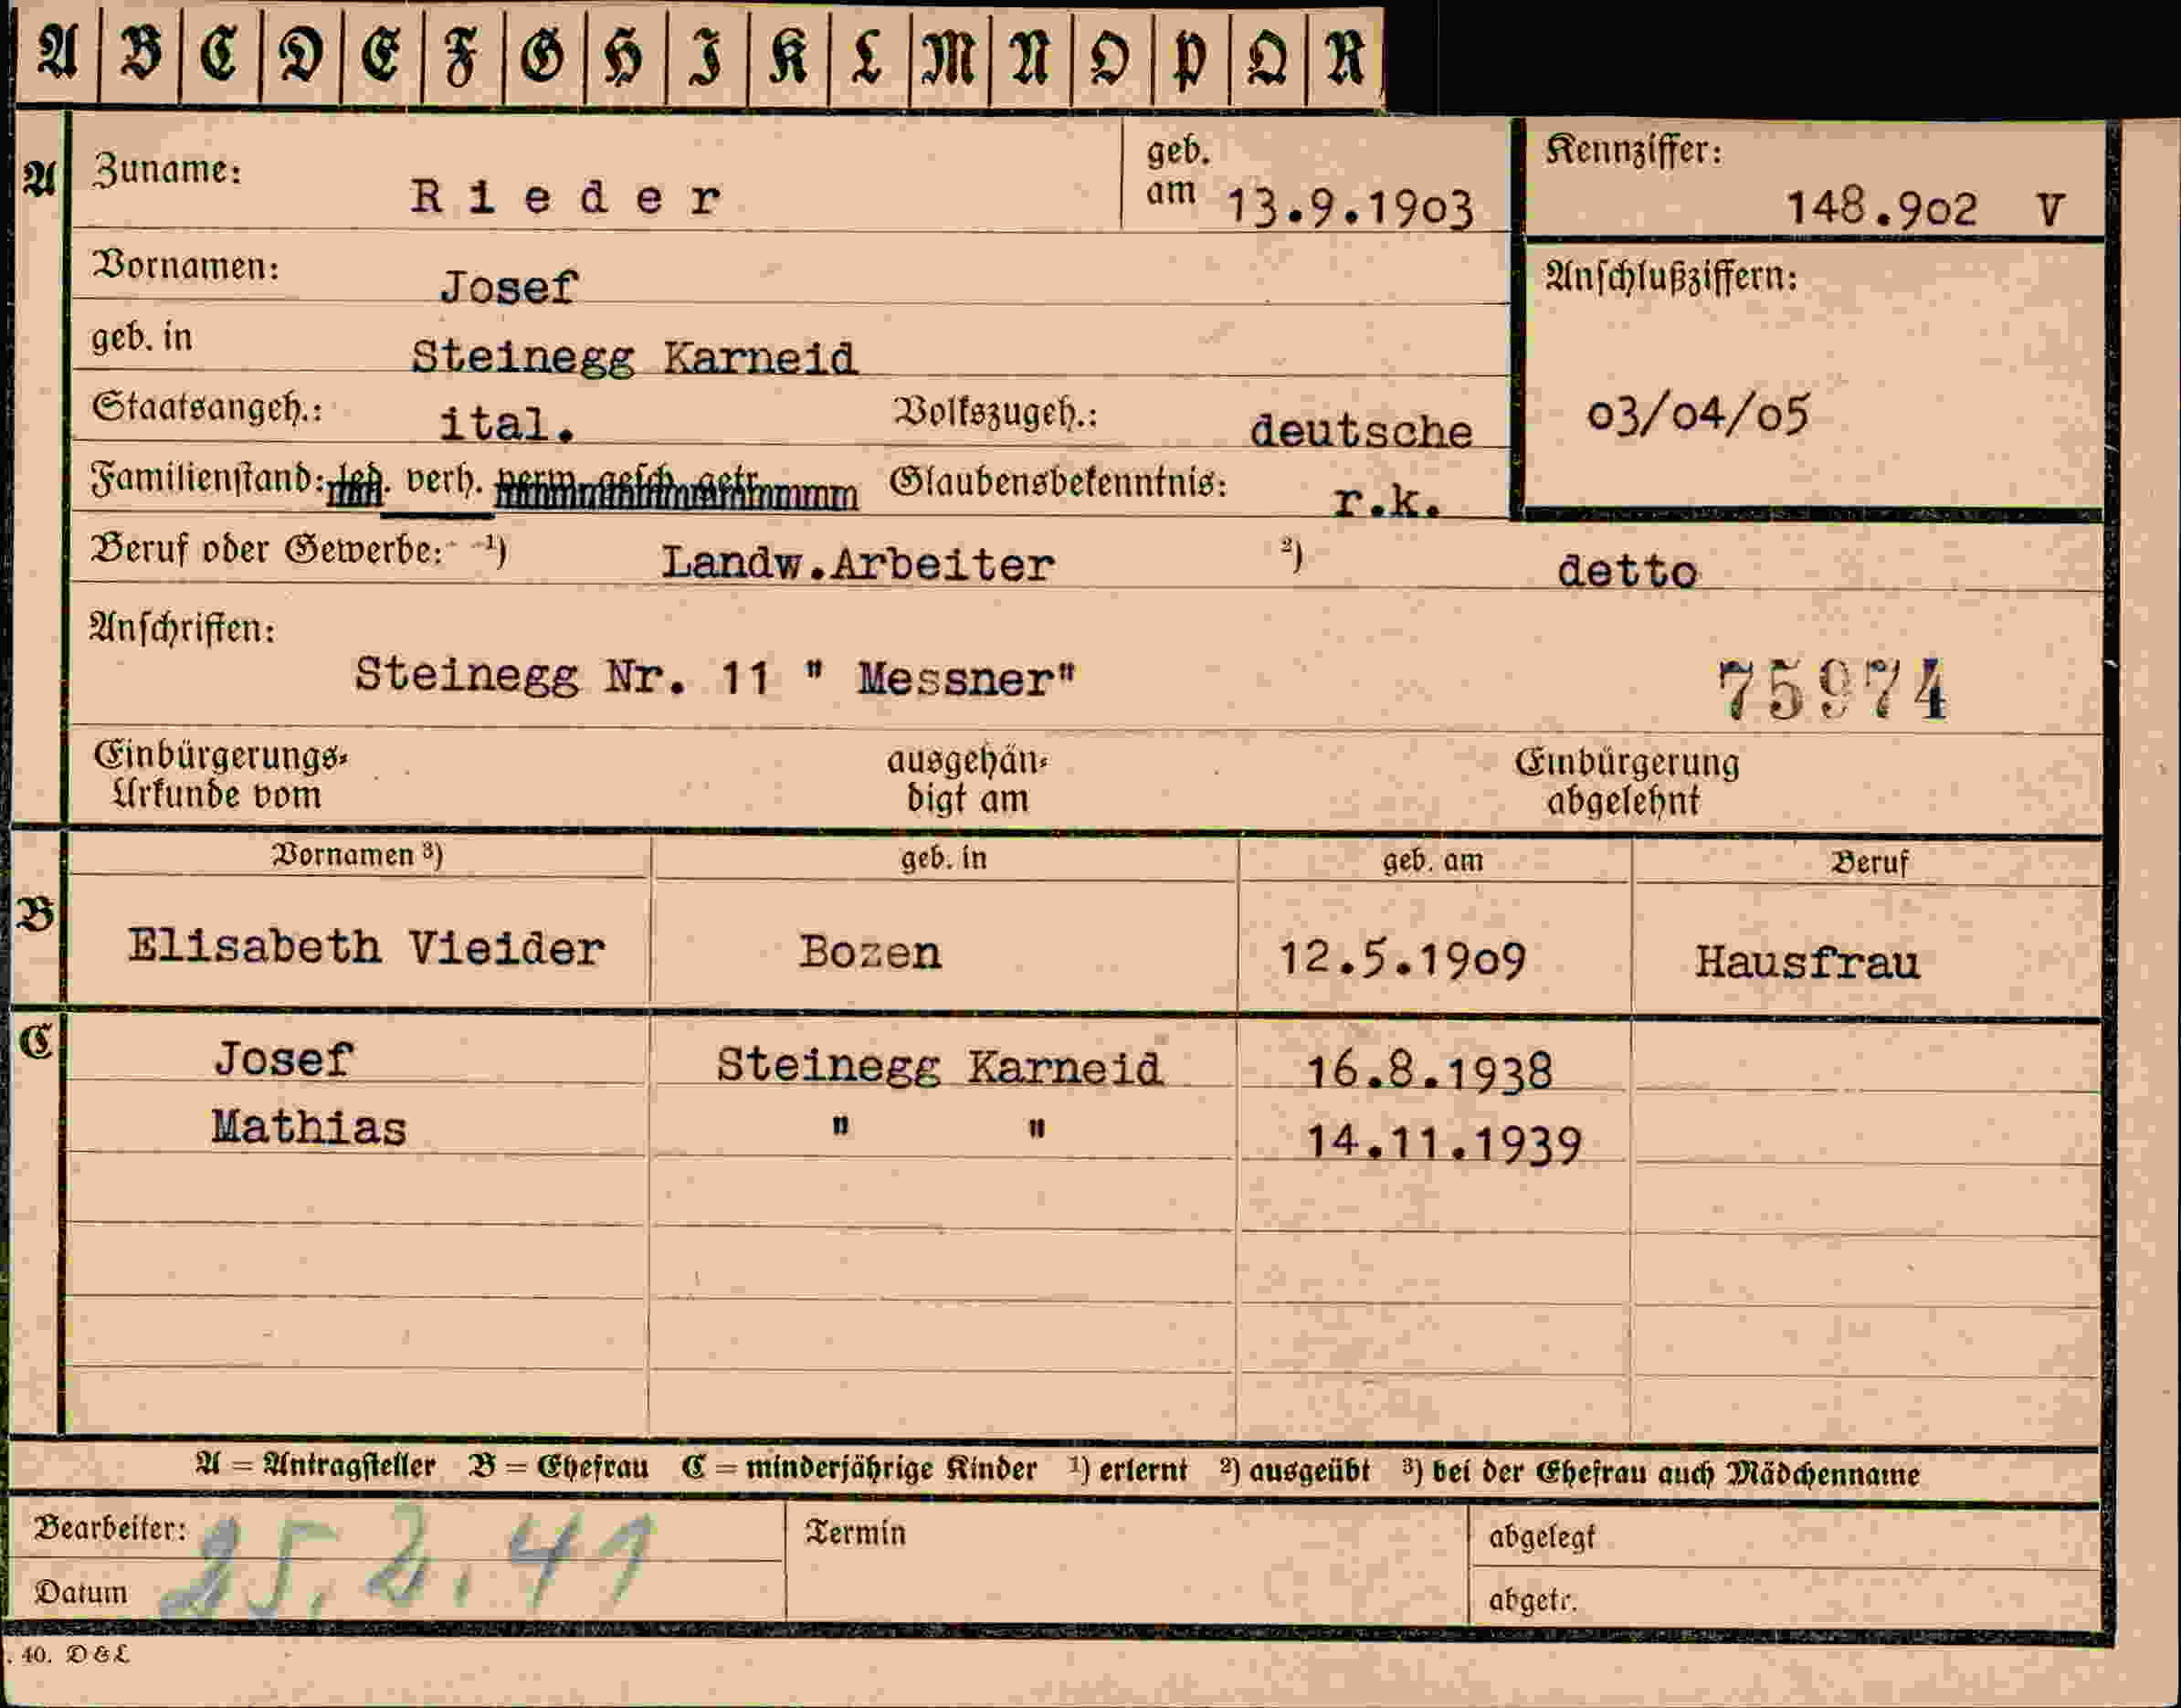 A B C D E F G H I K L M N O P Q R
A Zuname: Rieder geb. am 13.9.1903 Kennziffer: 148.902 V
Vornamen: Josef Anschlußziffern:
geb. in Steinegg Karneid
Staatsangeh.: ital. Volkszugeh.: deutsche 03/04/05
Familienstand: led. verh. verw. gesch. getr. Glaubensbekenntnis: r.k.
Beruf oder Gewerbe: ¹) Landw.Arbeiter ²) detto
Anschriften:
Steinegg Nr. 11 " Messner" 75974
Einbürgerungs- ausgehän- Einbürgerung
Urkunde vom digt am abgelehnt
Vornamen ³) geb. in geb. am Beruf
B Elisabeth Vieider Bozen 12.5.1909 Hausfrau
C Josef Steinegg Karneid 16.8.1938
Mathias " " 14.11.1939
A = Antragsteller B = Ehefrau C = minderjährige Kinder ¹) erlernt ²) ausgeübt ³) bei der Ehefrau auch Mädchenname
Bearbeiter: Termin abgelegt
25.2.41
Datum abgetr.
. 40. D & L